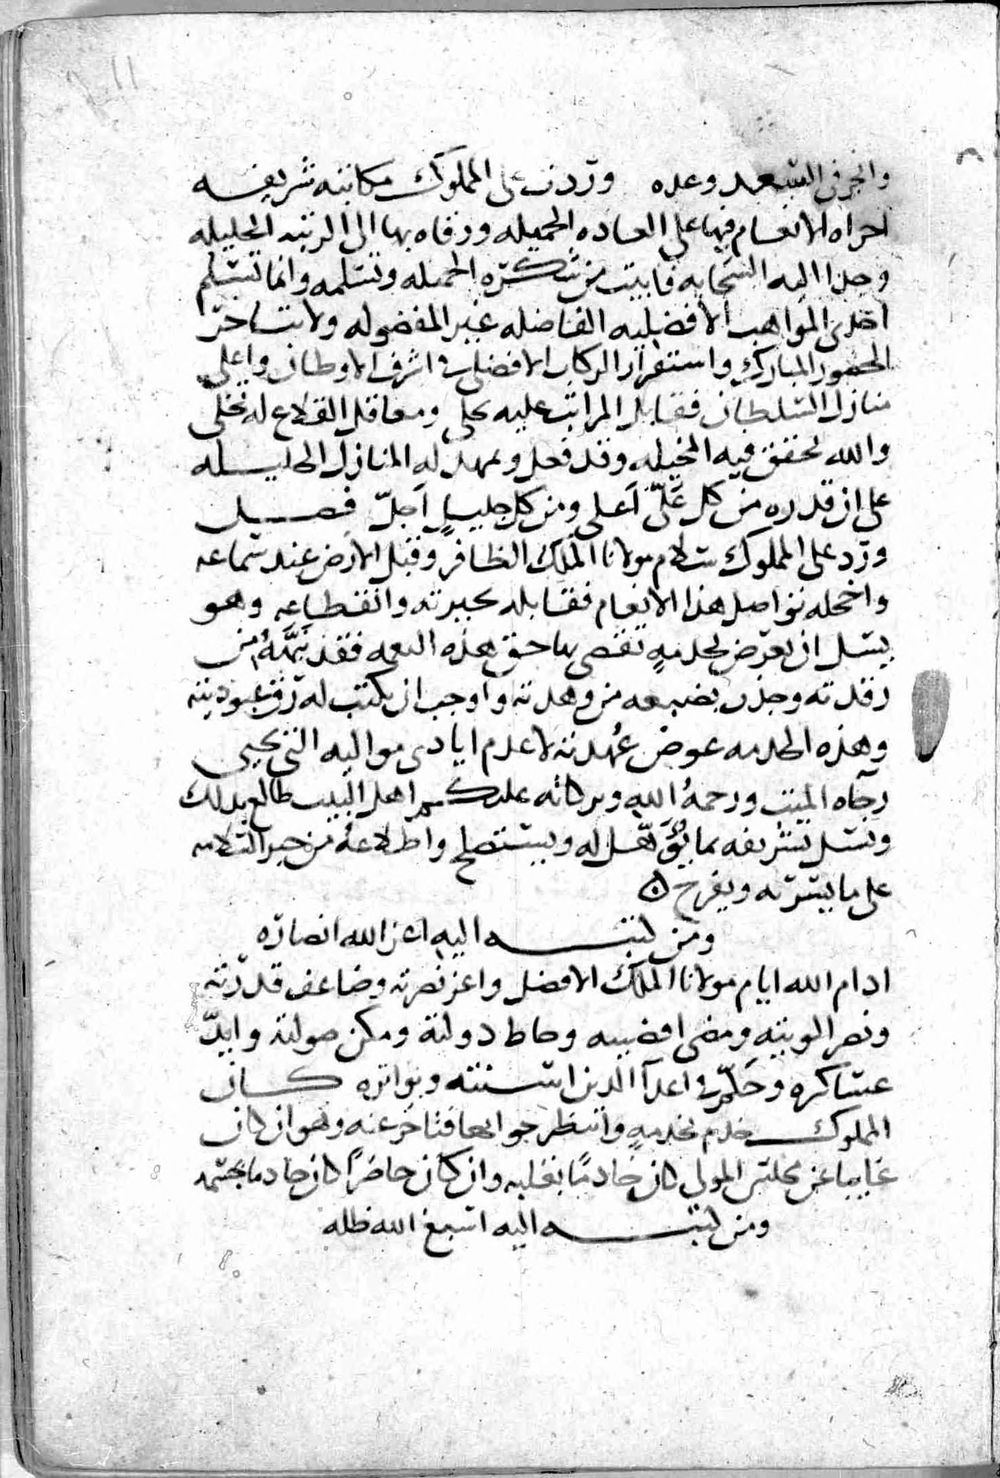 وانجز في السعد وعده وردت على المملوك مكاتبه شريفه
اجراه الانعام فيها على العاده الجميله ورقاه بها الى الرتبه الجليله
وحدا اليه السحابه من شكره الجميله وتسلمه وانما تسلم
احدى المواهب الافضليه الفاضله غير المفضوله ولا تتاخر
الحضور المبارك واستقرار الركاب الافضلى فى اشرف الاوطان واعلى
منازل السلطان فقابل المراتب عليه تحلى ومعاقل القلاع له تخلى
والله يحقق فيه المخيله وقد فعل ويمهد له المنازل الجليله
على ان قدره من كل على اعلى ومن كل جليل اجل فصل
ورد على المملوك سلام مولانا الملك الظافر وقبل الارض عند سماعه
واخجله تواصل هذا الانعام فقابله بحيرته وانقطاعه وهو
يسل ان يعرض لخدمه تقضى بها حق هذه النعمه فقد نبهه من
رقدته وجذب بضبعه من وهدته واوجب ان يكتب له رق عبوديته
وهذه الخدمه عوض عهدته لا عدم ايادى مواليه التى تحيى
رجآه الميت ورحمة الله وبركاته عليكم اهل البيت طالع بذلك
ويسل تشريفه بما يؤهل له ويستصلح واطلاعه من خبر السلامه
على ما يسره ويفرح
ومن كتبه اليه اعز الله انصاره
ادام الله ايام مولانا الملك الافضل واعز نصرته وضاعف قدرته
ونصر الويته ومضى اقضيته وحاط دولته ومكن صولته وايد
عساكره وحكم فى اعدآ الدين اسنته وبواتره كان
المملوك خدم بخدمه وانتظر جوابها فتاخر عنه وهو ان كان
غايبا عن مجلس المولى كان خادما بقلبه وان كان حاضرا كان خادما بجسمه
ومن كتبه اليه اسبغ الله ظله